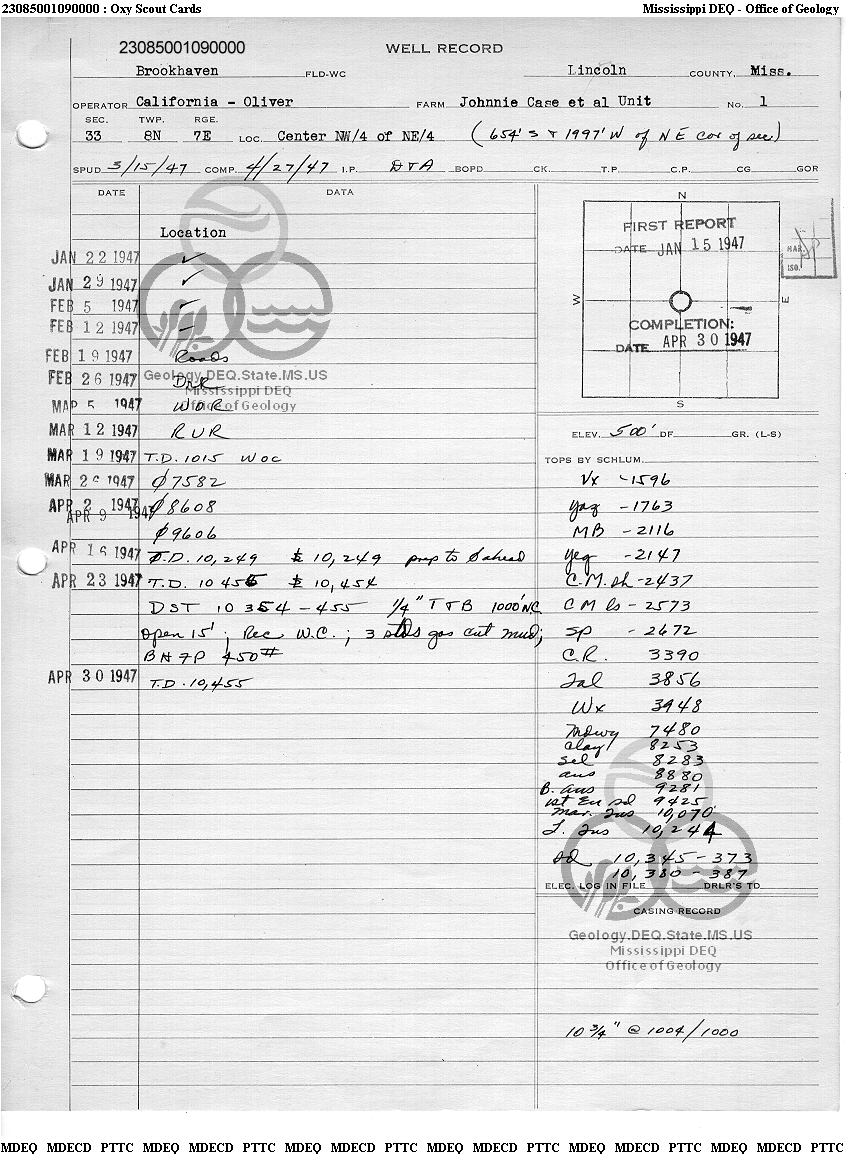 23085001090000 : Oxy Scout Cards Mississippi DEQ - Office of Geology
23085001090000 WELL RECORD
Brookhaven FLD-WC Lincoln COUNTY, Miss.
OPERATOR California - Oliver FARM Johnnie Case et al Unit No. 1
SEC. TWP. RGE.
33 8N 7E LOC. Center NW/4 of NE/4 (654' S & 1997' W of NE cor of sec)
SPUD 3/15/47 COMP. 4/27/47 I.P. D&A BOPD CK. T.P. C.P. CG GOR
DATE DATA
Location
JAN 22 1947 ✓
JAN 29 1947 ✓
FEB 5 1947 ✓
FEB 12 1947 ✓
FEB 19 1947 Roads
FEB 26 1947 DrR
MAR 5 1947 WOR
MAR 12 1947 RUR
MAR 19 1947 T.D. 1015 WOC
MAR 26 1947 ∅7582
APR 2 1947 ∅8608
APR 9 1947
∅9606
APR 16 1947 T.D. 10,249 10,249 prep to ahead
APR 23 1947 T.D. 10455 10,454
DST 10354-455 1/4" T&B 1000' NC
open 15'; Rec W.C.; 3 stds gas cut mud;
BHFP 450#
APR 30 1947 T.D. 10,455
N
FIRST REPORT
DATE JAN 15 1947
MAR.
ISO.
W E
COMPLETION:
DATE APR 30 1947
S
ELEV. 500' DF GR. (L-S)
TOPS BY SCHLUM.
Vx -1596
Yaz -1763
MB -2116
Yeg -2147
C.M. sh -2437
CM ls -2573
Sp -2672
C.R. 3390
Tal 3856
Wx 3948
Mdwy 7480
Clay 8253
Sel 8283
Aus 8880
B. Aus 9281
1st Eu sd 9425
Mar. Tus 10,070
L. Tus 10,244
Sd 10,345-373
10,380-387
ELEC. LOG IN FILE DRLR'S TD
CASING RECORD
10 3/4" @ 1004/1000
Geology.DEQ.State.MS.US
Mississippi DEQ
Office of Geology
Geology.DEQ.State.MS.US
Mississippi DEQ
Office of Geology
MDEQ MDECD PTTC MDEQ MDECD PTTC MDEQ MDECD PTTC MDEQ MDECD PTTC MDEQ MDECD PTTC MDEQ MDECD PTTC MDEQ MDECD PTTC